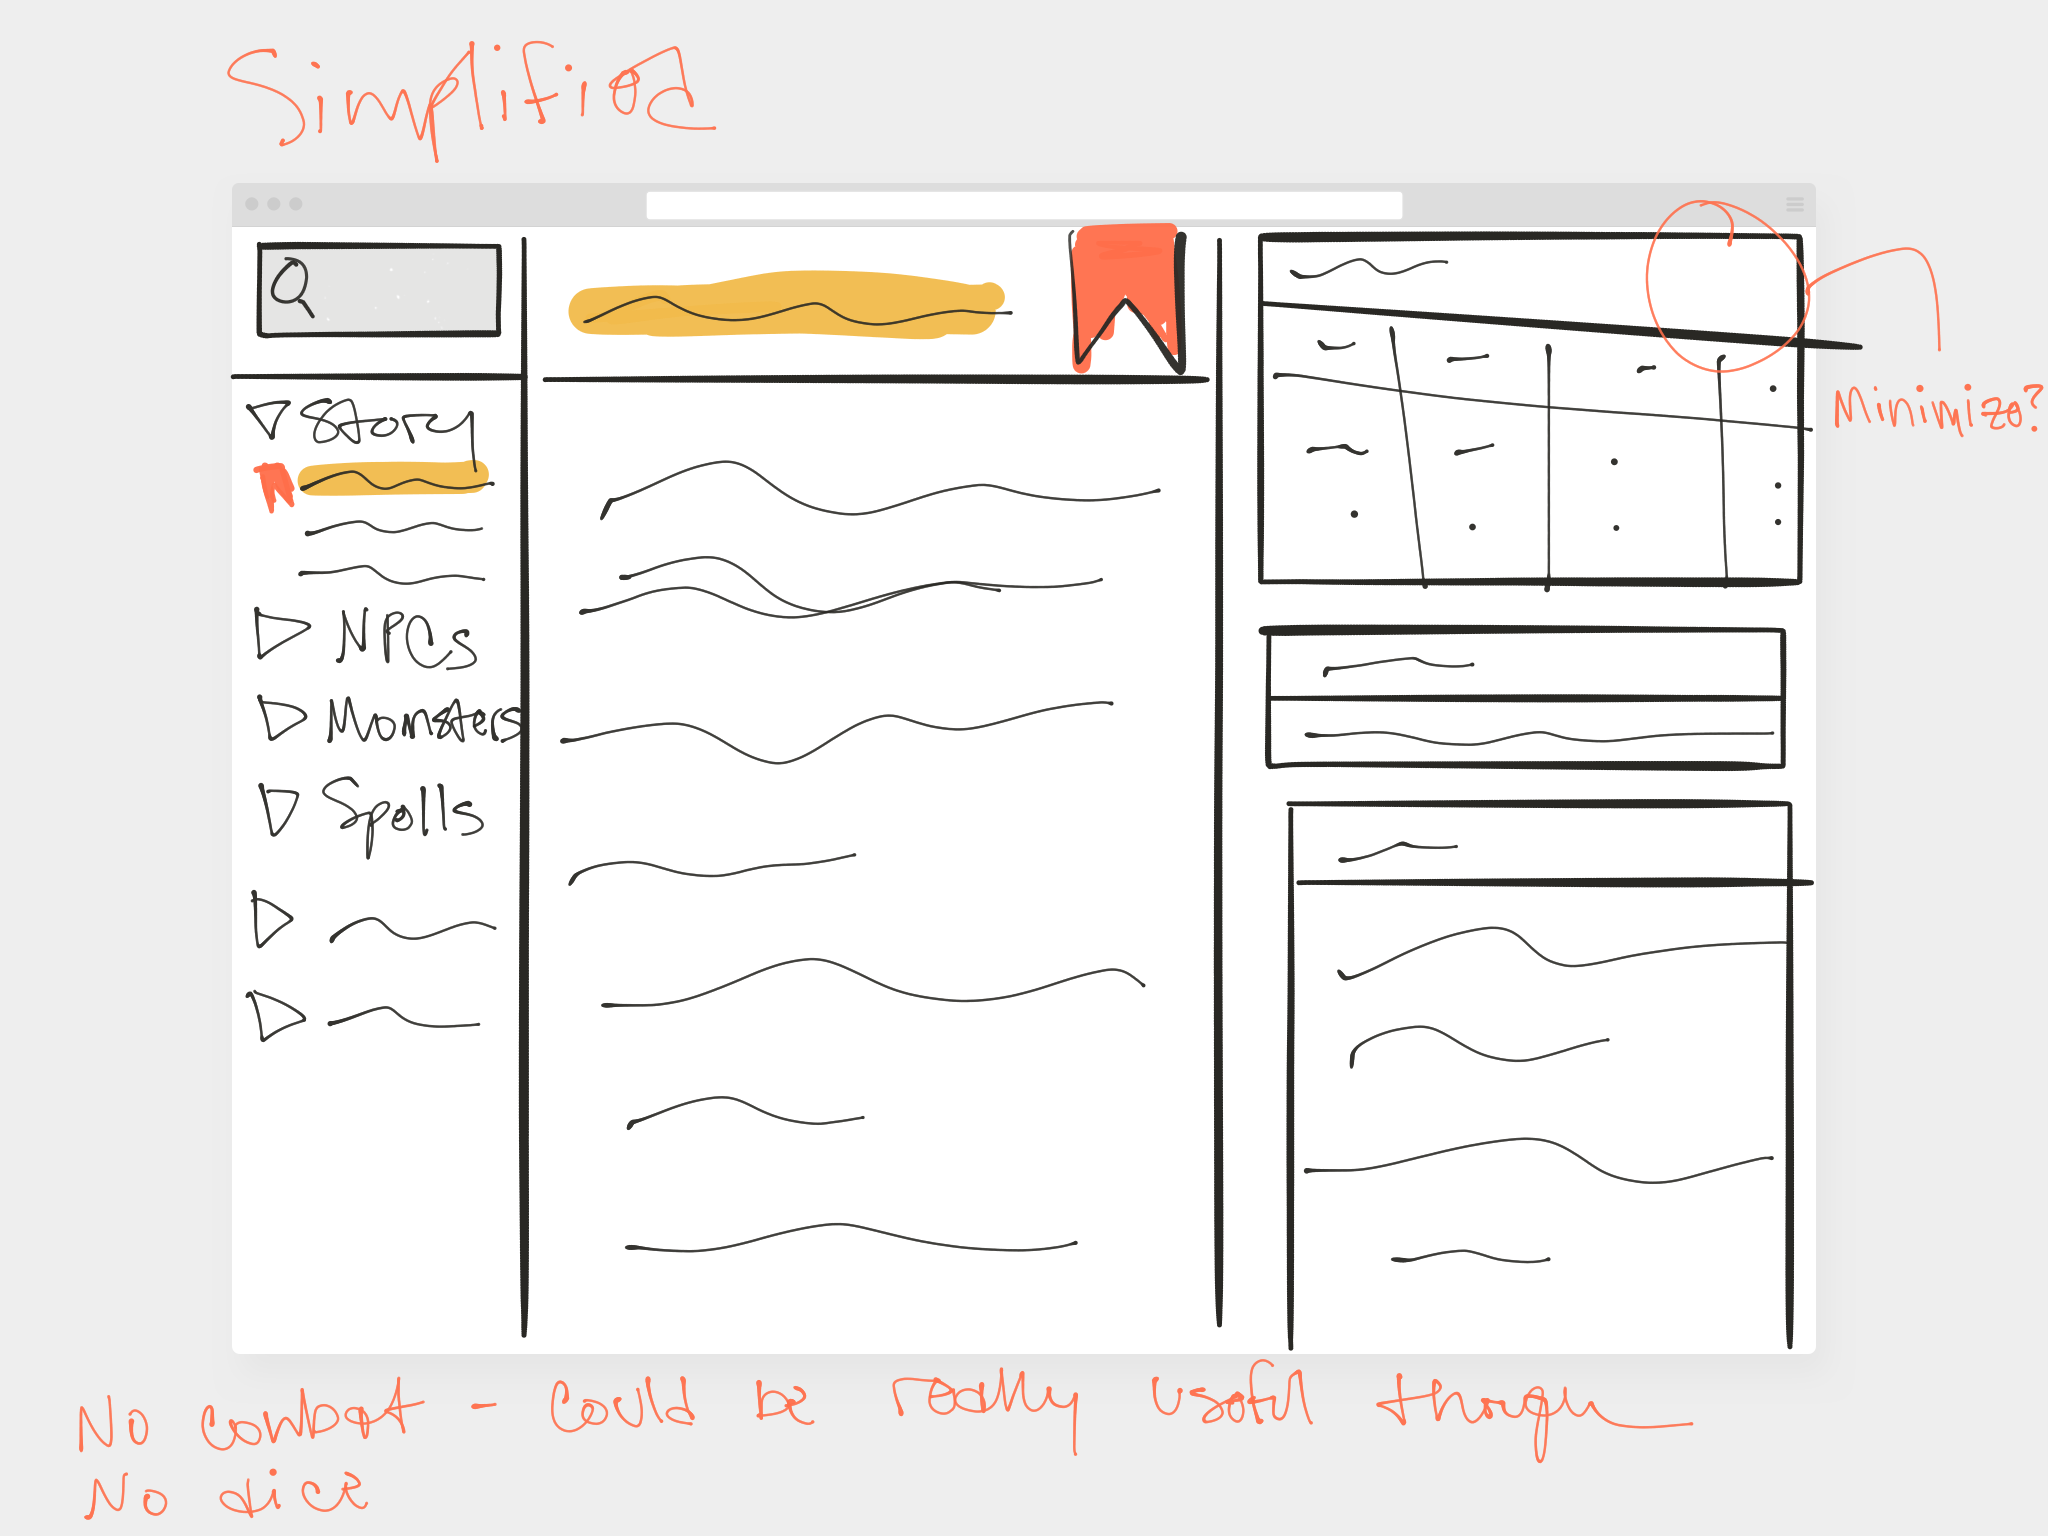 Simplified
Story
NPCs
Monsters
Spells
Minimize?
No combat - could be really useful though
No dice